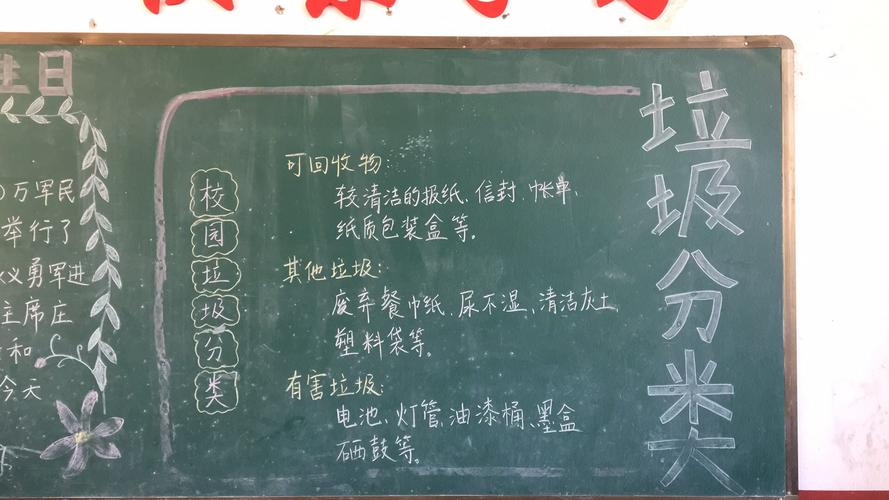 生日
万军民
举行了
义勇军进
主席庄
和
今天
校园垃圾分类
可回收物:
较清洁的报纸、信封、帐单、
纸质包装盒等。
其他垃圾:
废弃餐巾纸、尿不湿、清洁灰土、
塑料袋等。
有害垃圾:
电池、灯管、油漆桶、墨盒
硒鼓等。
垃圾分类